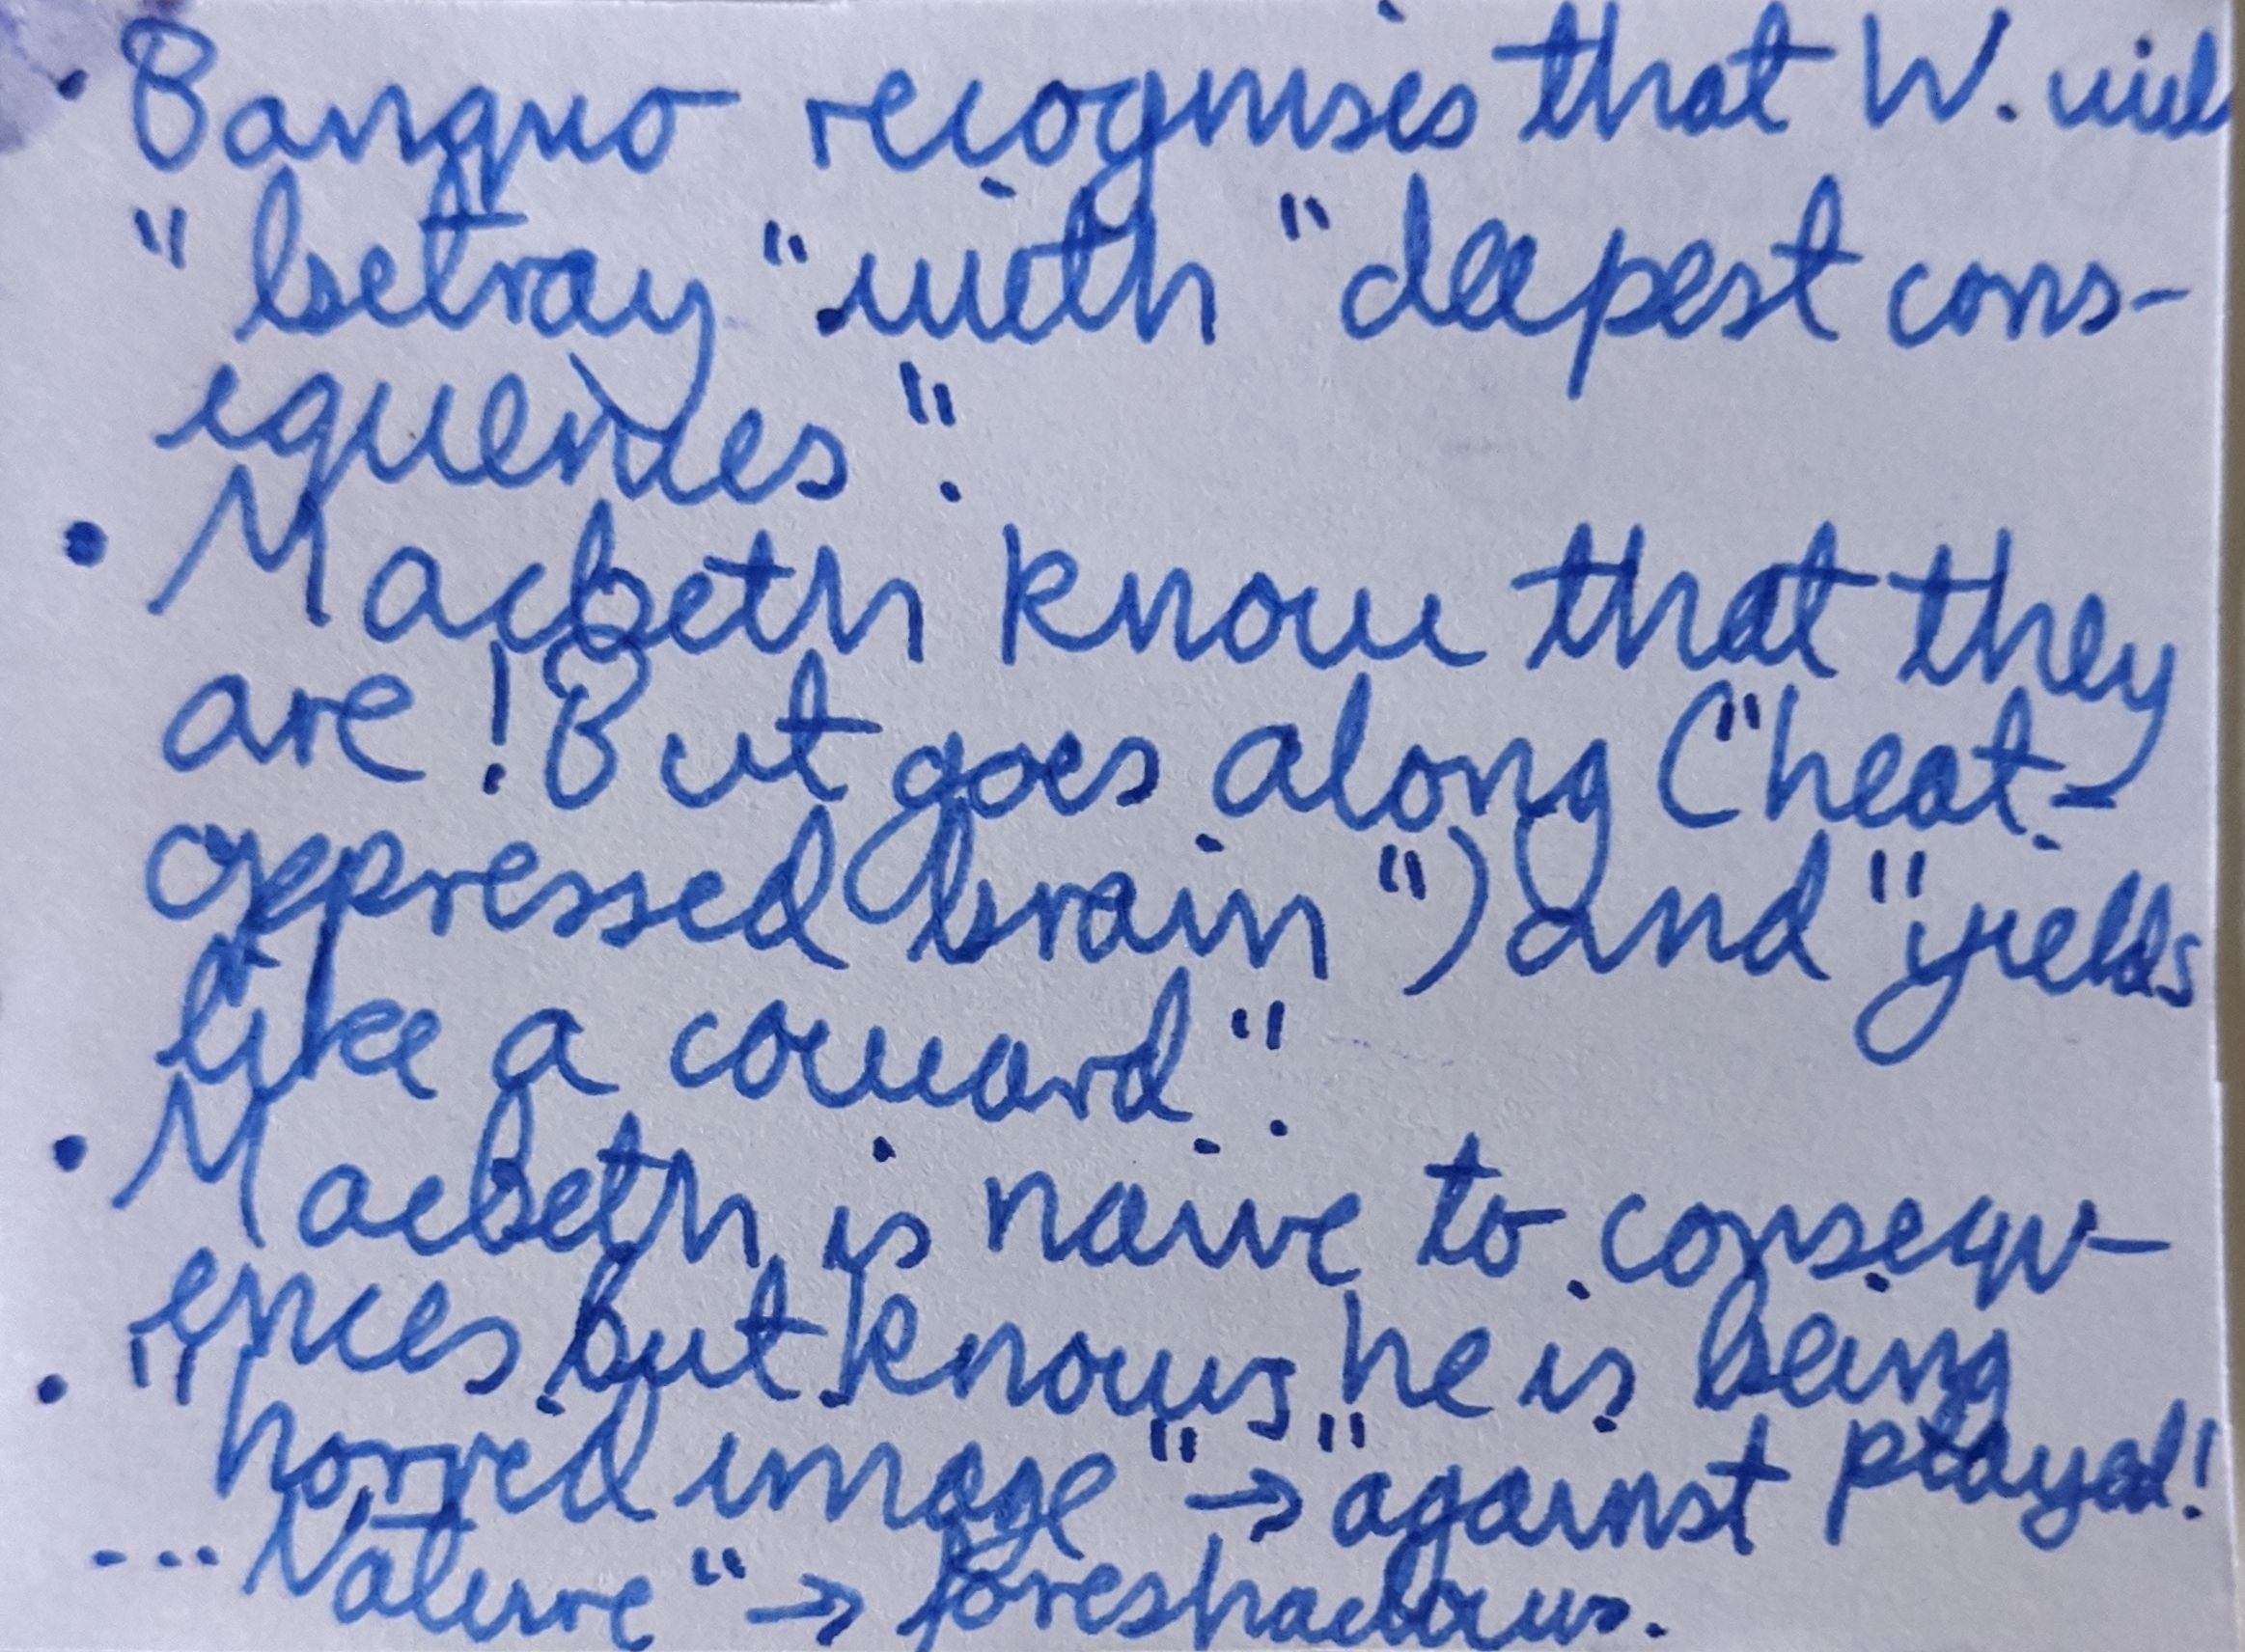 • Banquo recognises that W. will
"betray" with "deepest cons-
equences".
• Macbeth know that they
are! But goes along ("heat-
oppressed brain") and "yields
like a coward".
• Macbeth is naive to consequ-
ences but knows he is being
played!
• "horrid image" → "against
... Nature" → foreshadows.